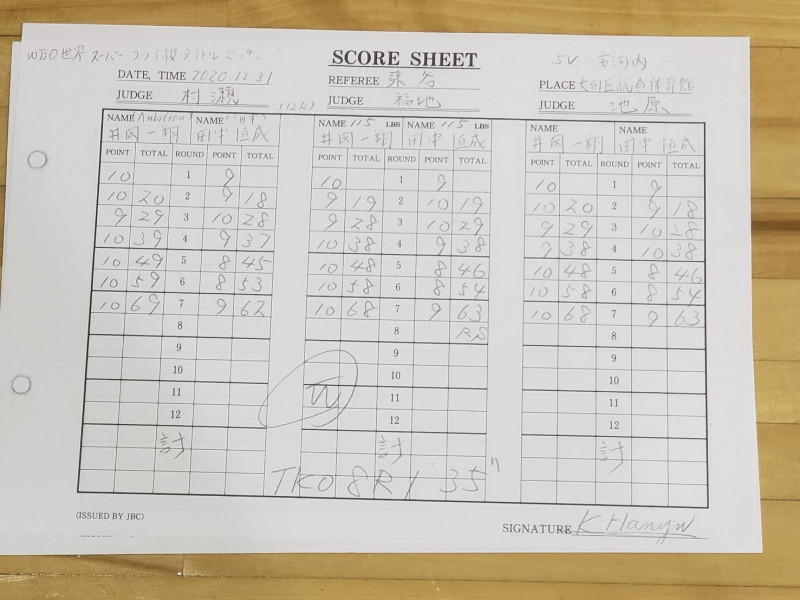 WBO世界スーパーフライ級タイトルマッチ
SCORE SHEET
SV 安河内
DATE, TIME 2020.12.31
REFEREE 染谷
PLACE 大田区総合体育館
JUDGE 村瀬
JUDGE 福地
JUDGE 池原
NAME Ambition NAME NAME 115 LBS NAME 115 LBS NAME NAME
井岡一翔 田中恒成 井岡一翔 田中恒成 井岡一翔 田中恒成
POINT TOTAL ROUND POINT TOTAL POINT TOTAL ROUND POINT TOTAL POINT TOTAL ROUND POINT TOTAL
10 1 9 10 1 9 10 1 9
10 20 2 9 18 9 19 2 10 19 10 20 2 9 18
9 29 3 10 28 9 28 3 10 29 9 29 3 10 28
10 39 4 9 37 10 38 4 9 38 9 38 4 10 38
10 49 5 8 45 10 48 5 8 46 10 48 5 8 46
10 59 6 8 53 10 58 6 8 54 10 58 6 8 54
10 69 7 9 62 10 68 7 9 63 10 68 7 9 63
8 8 RS 8
9 9 9
10 10 10
11 11 11
12 12 12
計 計 計
TKO 8R 1' 35"
(ISSUED BY JBC)
SIGNATURE K Hanyu